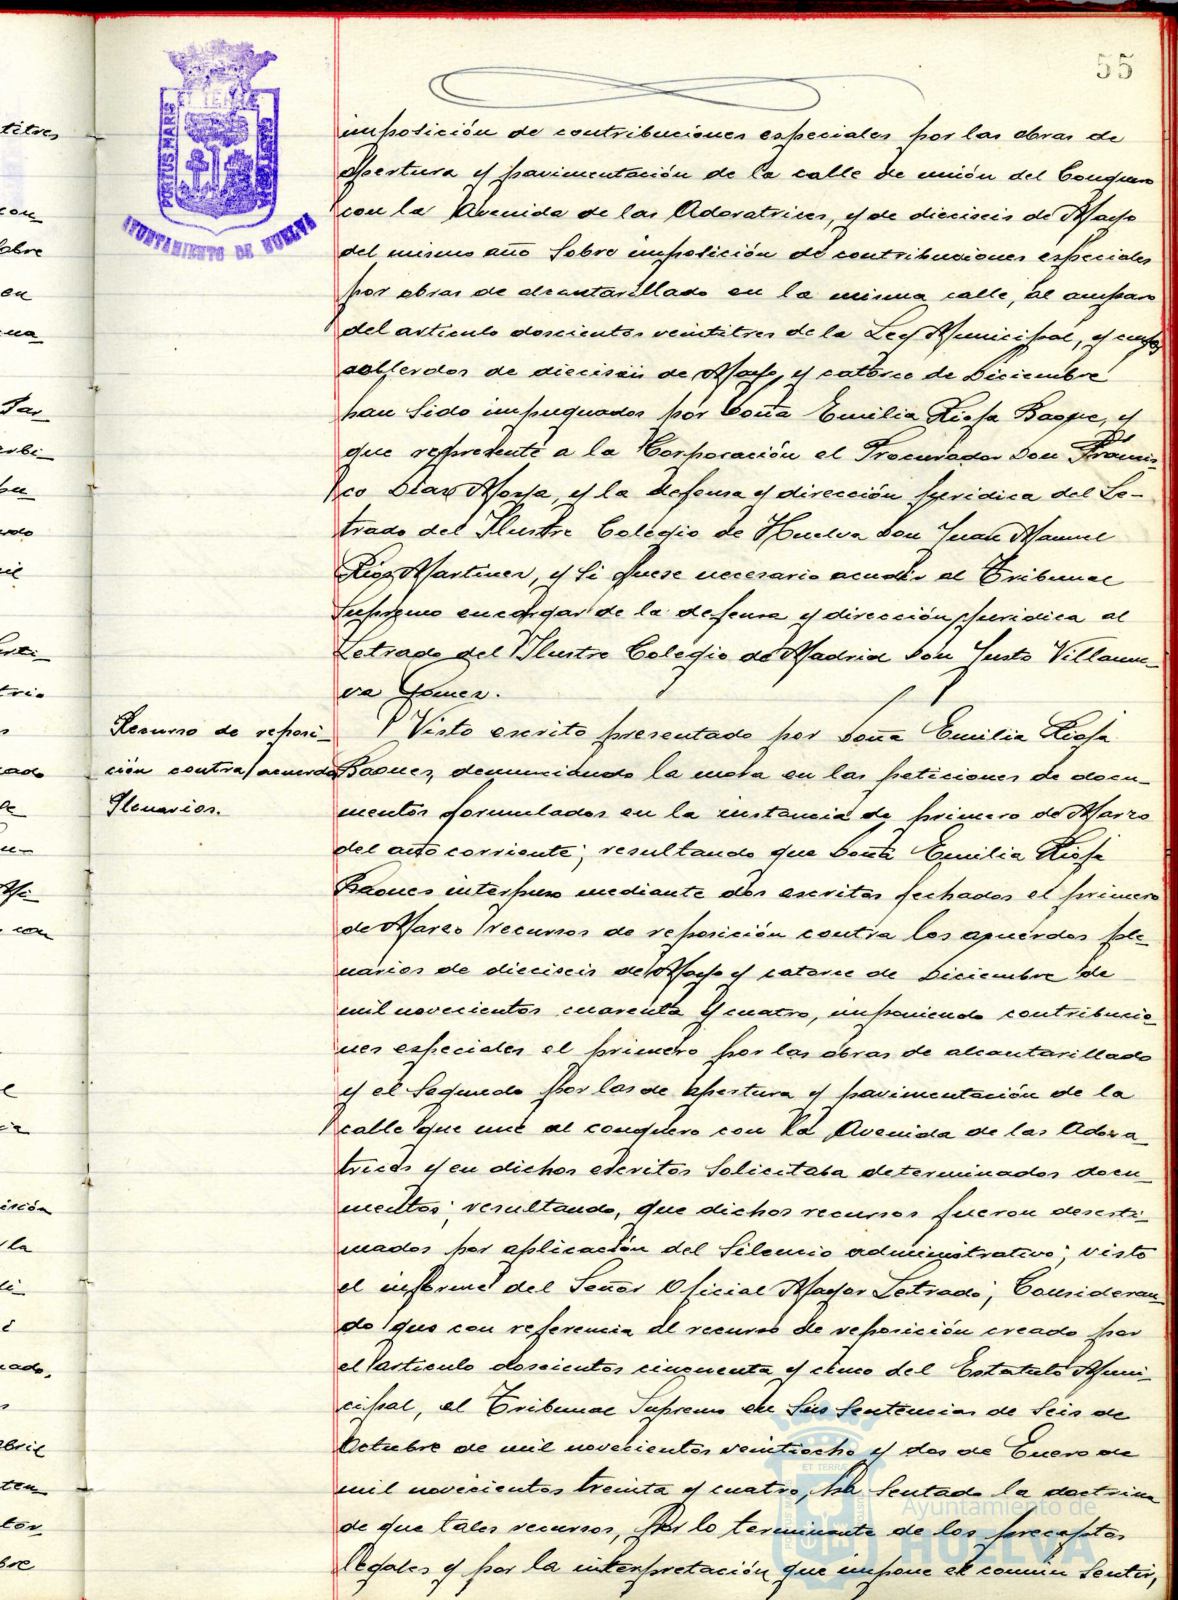 55
PORTUS MARIS ET TERRAE CUSTODIA
AYUNTAMIENTO DE HUELVA
imposición de contribuciones especiales por las obras de
apertura y pavimentación de la calle de unión del Conquero
con la Avenida de las Adoratrices, y de dieciseis de Mayo
del mismo año sobre imposición de contribuciones especiales
por obras de alcantarillado en la misma calle, al amparo
del articulo doscientos veintitres de la Ley Municipal, y cuyos
acuerdos de dieciseis de Mayo, y catorce de Diciembre
han sido impugnados por Doña Emilia Rioja Baque, y
que represente a la Corporación el Procurador Don Francis-
co Diaz Mora, y la defensa y dirección juridica del Le-
trado del Ilustre Colegio de Huelva Don Juan Manuel
Rios Martinez, y si fuese necesario acudir al Tribunal
Supremo encargar de la defensa y dirección juridica al
Letrado del Ilustre Colegio de Madrid Don Justo Villanue-
va Gomez.
Recurso de reposi-
ción contra acuerdo
Plenarios.
Visto escrito presentado por Doña Emilia Rioja
Baques, denunciando la mora en las peticiones de docu-
mentos formulados en la instancia de primero de Marzo
del año corriente; resultando que Doña Emilia Rioja
Baques interpuso mediante dos escritos fechados el primero
de Marzo recursos de reposición contra los acuerdos ple-
narios de dieciseis de Mayo y catorce de Diciembre de
mil novecientos cuarenta y cuatro, imponiendo contribucio-
nes especiales el primero por las obras de alcantarillado
y el segundo por las de apertura y pavimentación de la
calle que une al conquero con la Avenida de las Adora-
trices y en dichos escritos solicitaba determinados docu-
mentos; resultando, que dichos recursos fueron desesti-
mados por aplicación del silencio administrativo; visto
el informe del Señor Oficial Mayor Letrado; Consideran-
do que con referencia al recurso de reposición creado por
el articulo doscientos cincuenta y cinco del Estatuto Muni-
cipal, el Tribunal Supremo en sus Sentencias de seis de
Octubre de mil novecientos veintiocho y dos de Enero de
mil novecientos treinta y cuatro, ha sentado la doctrina
de que tales recursos, por lo terminante de los preceptos
legales y por la interpretación que impone el común sentir,
Ayuntamiento de
HUELVA